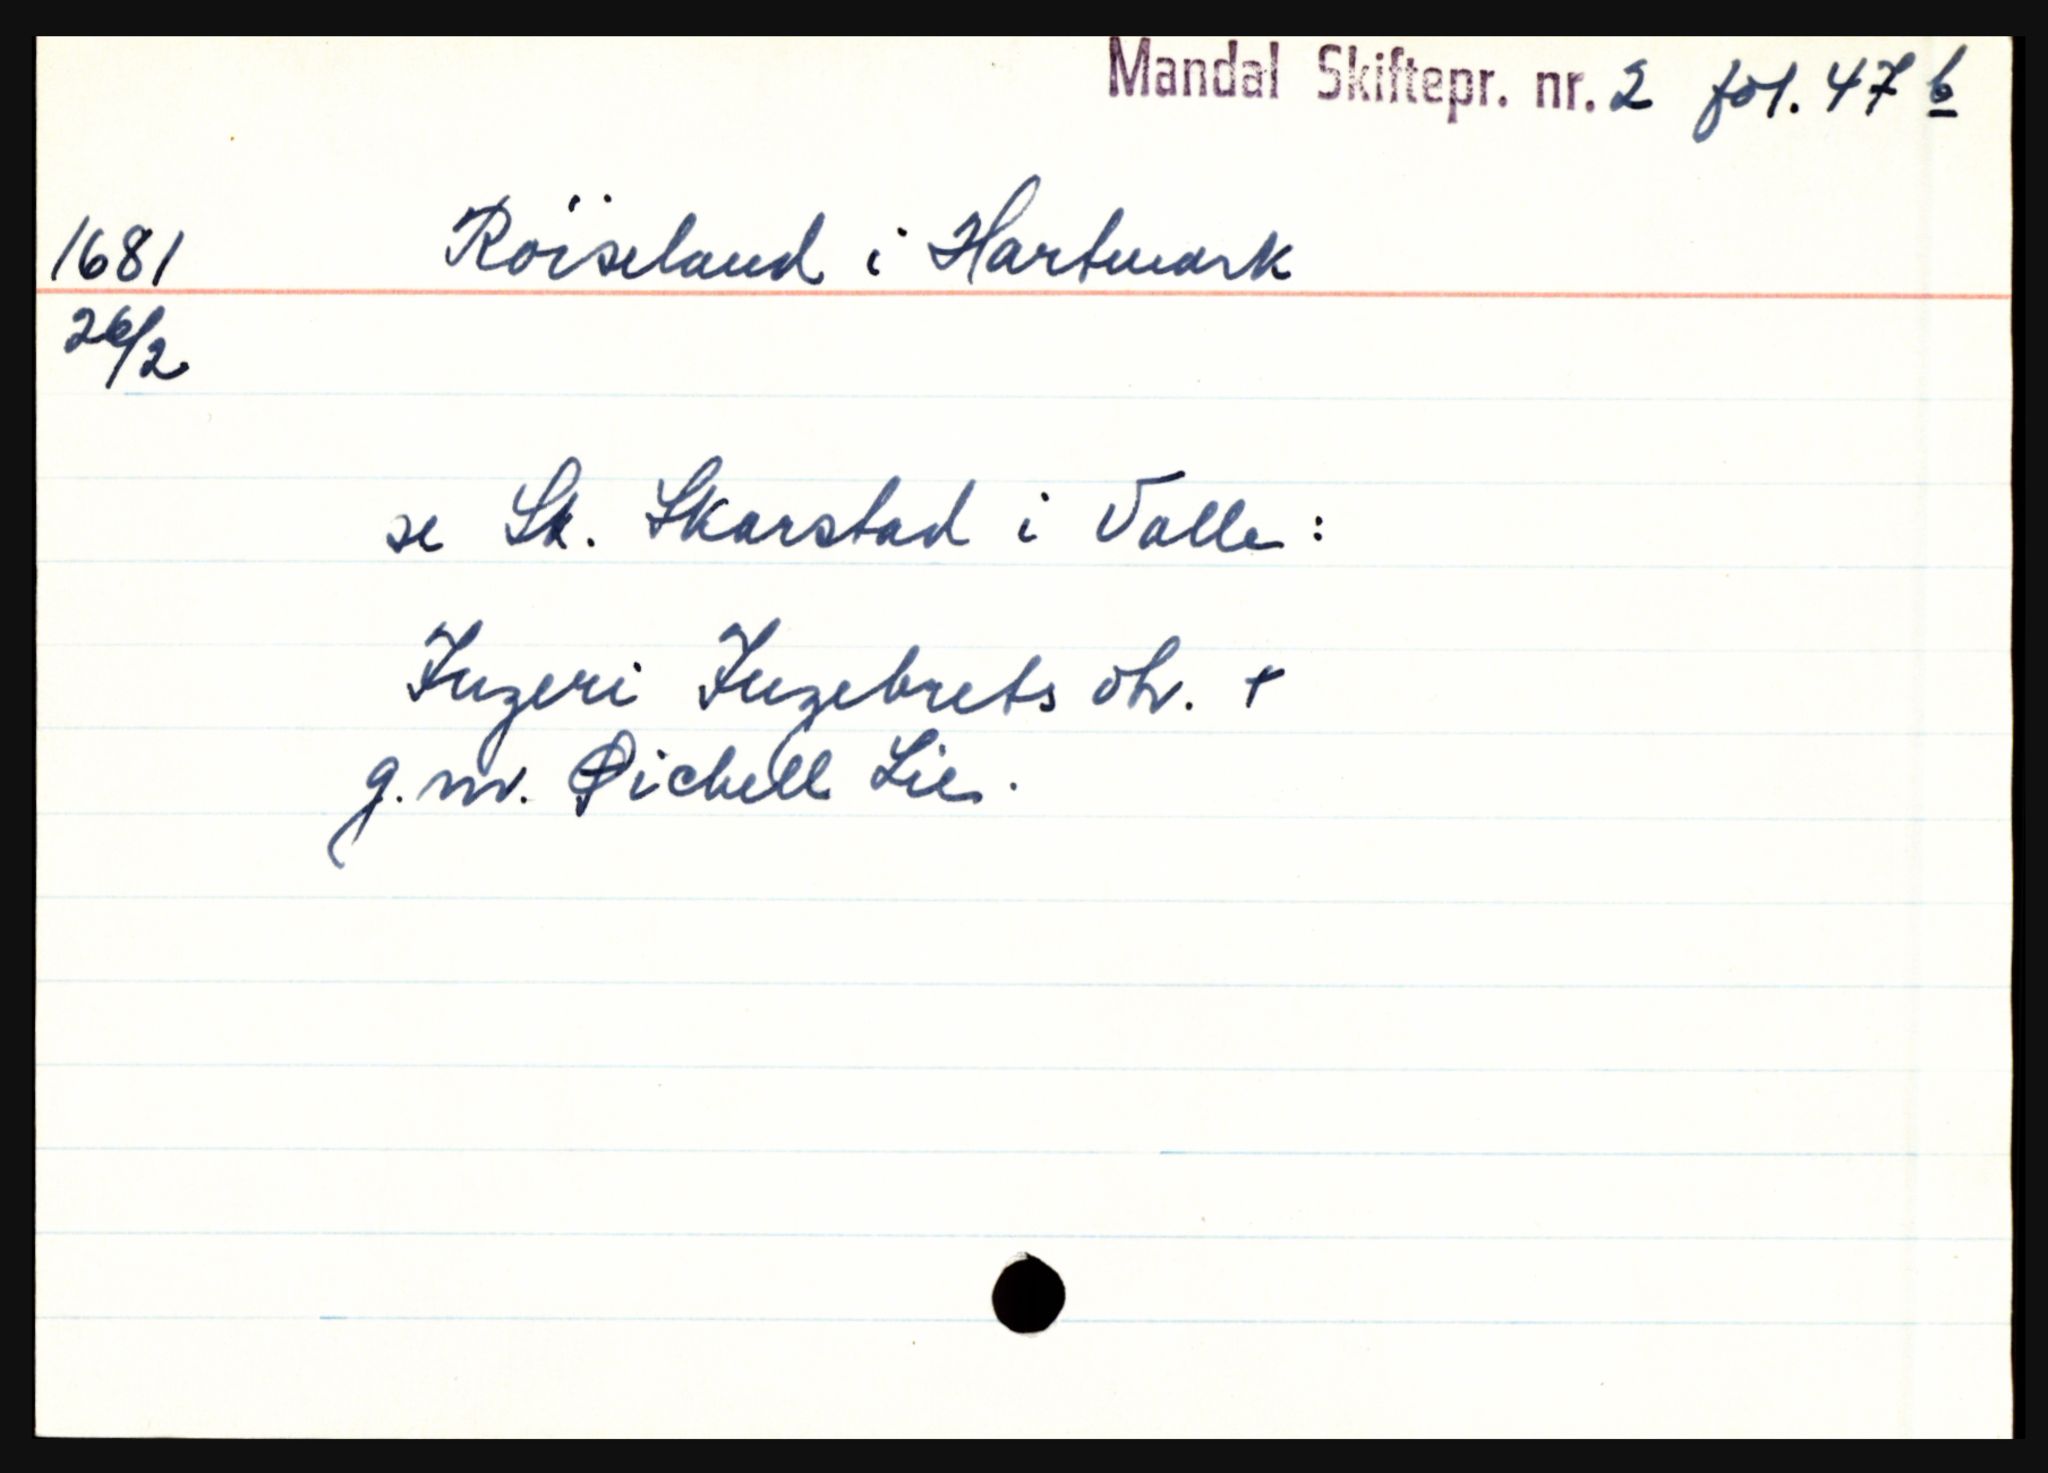 Mandal Skiftepr. nr. 2 fol. 47 b
1681 Röiseland i Hartmark
26/2
se Sk. Skarstad i Valle:
Ingeri Ingebrets dtr. +
g.m. Øichell Lie.